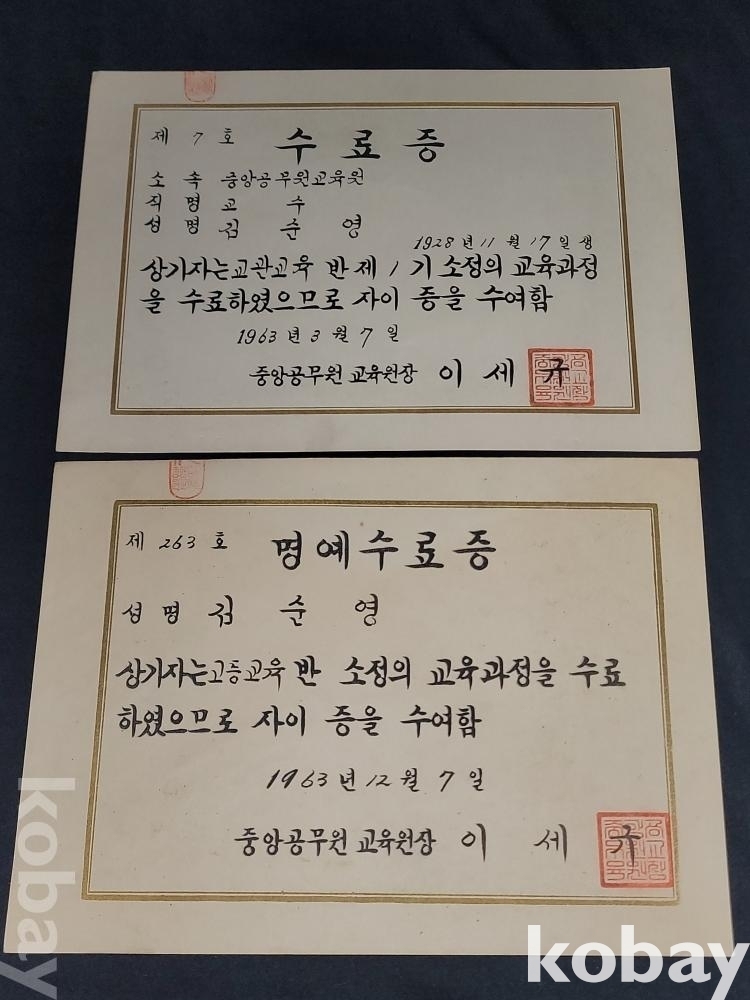 제 7 호 수료증
소 속 중앙공무원교육원
직 명 교 수
성 명 김 순 영
1928 년 11 월 17 일 생
상기자는교관교육 반 제 1 기 소정의 교육과정
을 수료하였으므로 자이 증을 수여함
1963 년 3 월 7 일
중앙공무원 교육원장 이 세 규
제 263 호 명예수료증
성 명 김 순 영
상기자는고등교육 반 소정의 교육과정을 수료
하였으므로 자이 증을 수여함
1963 년 12 월 7 일
중앙공무원 교육원장 이 세 규
kobay
kobay